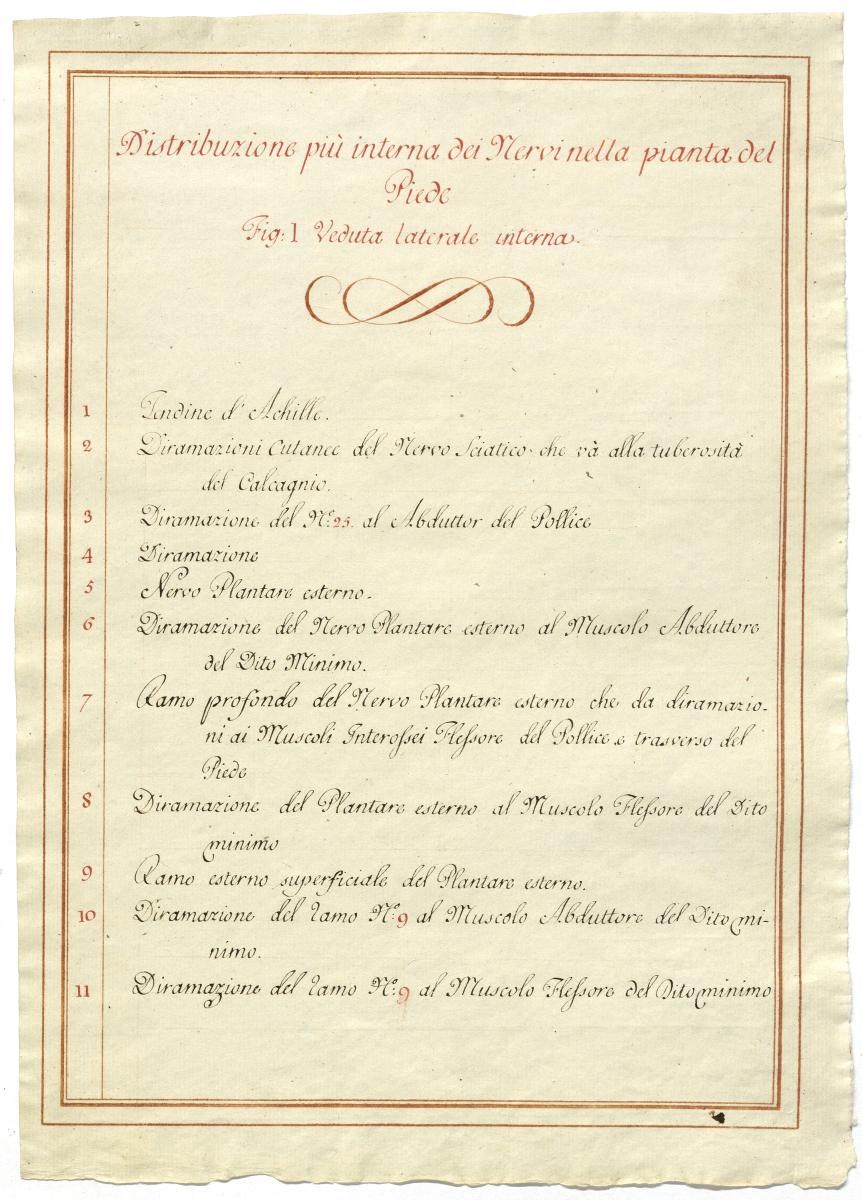 Distribuzione più interna dei Nervi nella pianta del
Piede
Fig: 1 Veduta laterale interna.
1 Tendine d' Achille.
2 Diramazioni Cutanee del Nervo Sciatico che và alla tuberosità
del Calcagnio.
3 Diramazione del N.º 25. al Abduttor del Pollice
4 Diramazione
5 Nervo Plantare esterno.
6 Diramazione del Nervo Plantare esterno al Muscolo Abduttore
del Dito Minimo.
7 Ramo profondo del Nervo Plantare esterno che da diramazio-
ni ai Muscoli Interoſsei Fleſsore del Pollice e trasverso del
Piede
8 Diramazione del Plantare esterno al Muscolo Fleſsore del Dito
minimo
9 Ramo esterno superficiale del Plantare esterno.
10 Diramazione del ramo N.º 9 al Muscolo Abduttore del Dito mi-
nimo.
11 Diramazione del ramo N.º 9 al Muscolo Fleſsore del Dito minimo